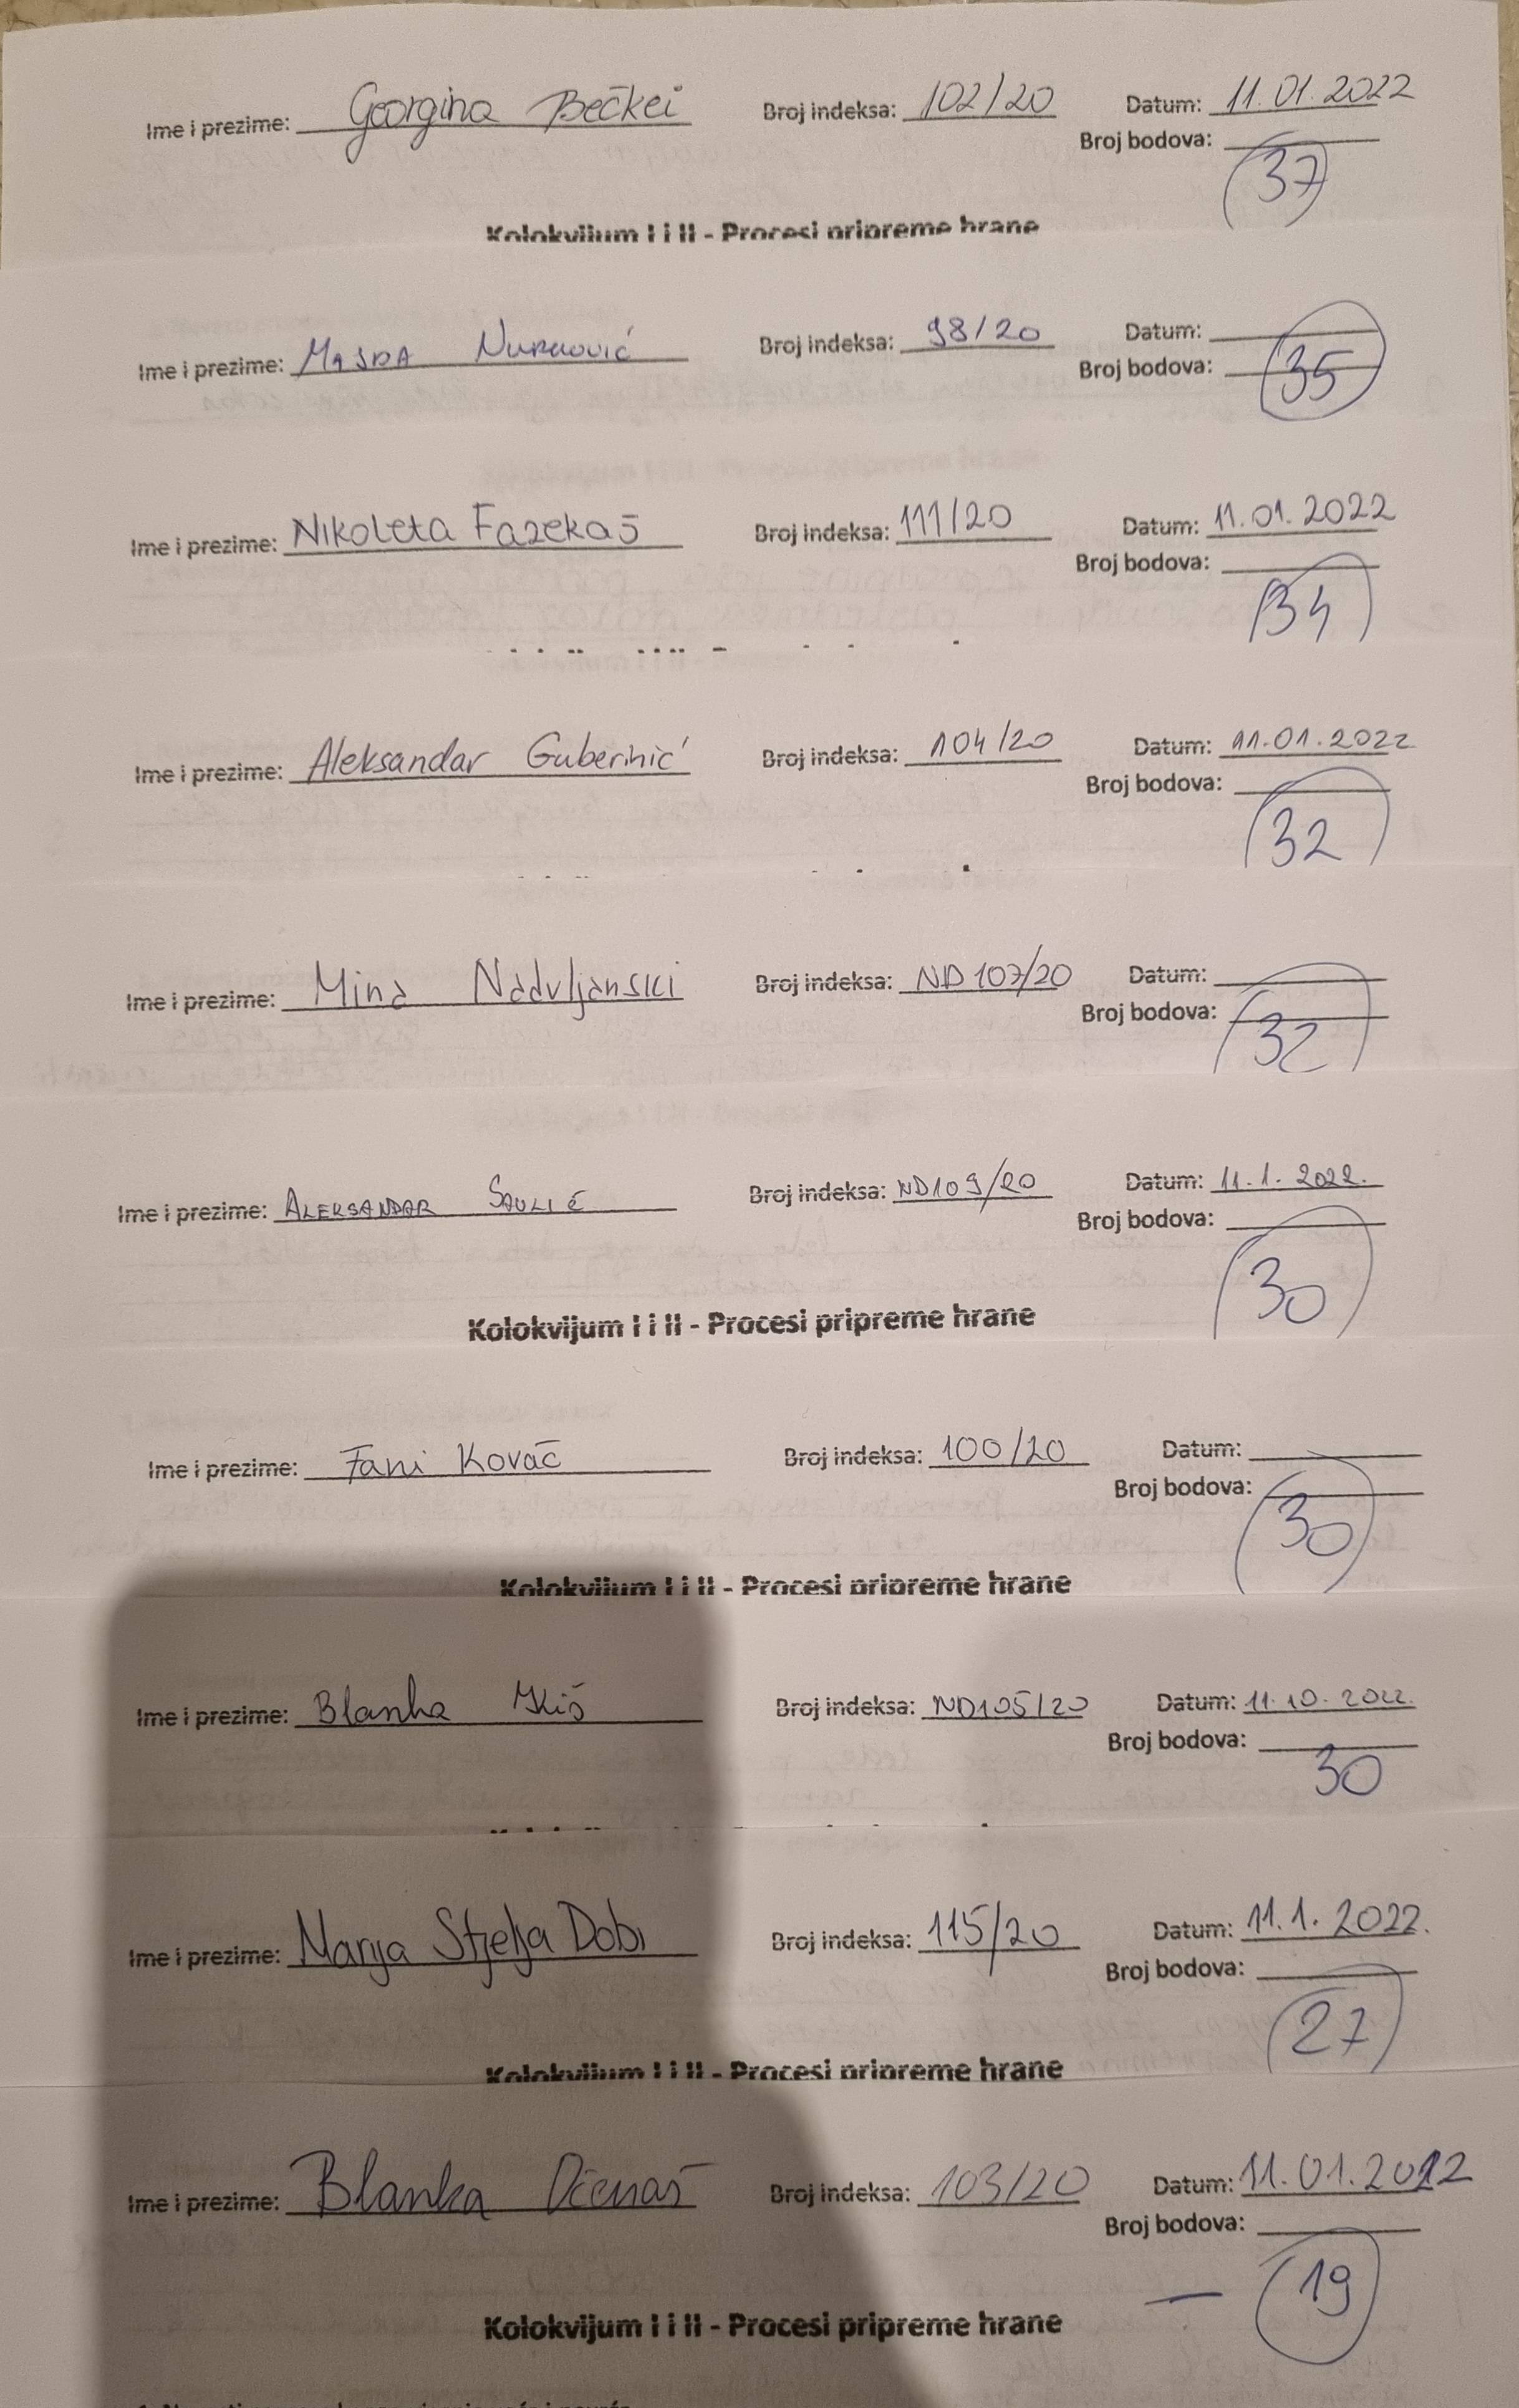 Ime i prezime: Georgina Bečkei Broj indeksa: 102/20 Datum: 11.01.2022
Broj bodova: 37
Kolokvijum I i II - Procesi pripreme hrane
Ime i prezime: Broj indeksa: 98/20 Datum:
Broj bodova: 35
Ime i prezime: Nikoleta Fazekaš Broj indeksa: 111/20 Datum: 11.01.2022
Broj bodova: 34
Ime i prezime: Aleksandar Guberinić Broj indeksa: 104/20 Datum: 11.01.2022
Broj bodova: 32
Ime i prezime: Mina Nadvljanski Broj indeksa: ND 107/20 Datum:
Broj bodova: 32
Ime i prezime: ALEKSANDAR SAULIĆ Broj indeksa: ND109/20 Datum: 11.1.2022.
Broj bodova: 30
Kolokvijum I i II - Procesi pripreme hrane
Ime i prezime: Fani Kovač Broj indeksa: 100/20 Datum:
Broj bodova: 30
Kolokvijum I i II - Procesi pripreme hrane
Ime i prezime: Blanka Kiš Broj indeksa: ND105/20 Datum: 11.10.2022.
Broj bodova: 30
Ime i prezime: Marija Stjelja Dobi Broj indeksa: 115/20 Datum: 11.1.2022.
Broj bodova: 27
Kolokvijum I i II - Procesi pripreme hrane
Ime i prezime: Blanka Broj indeksa: 103/20 Datum: 11.01.2022
Broj bodova:
— 19
Kolokvijum I i II - Procesi pripreme hrane